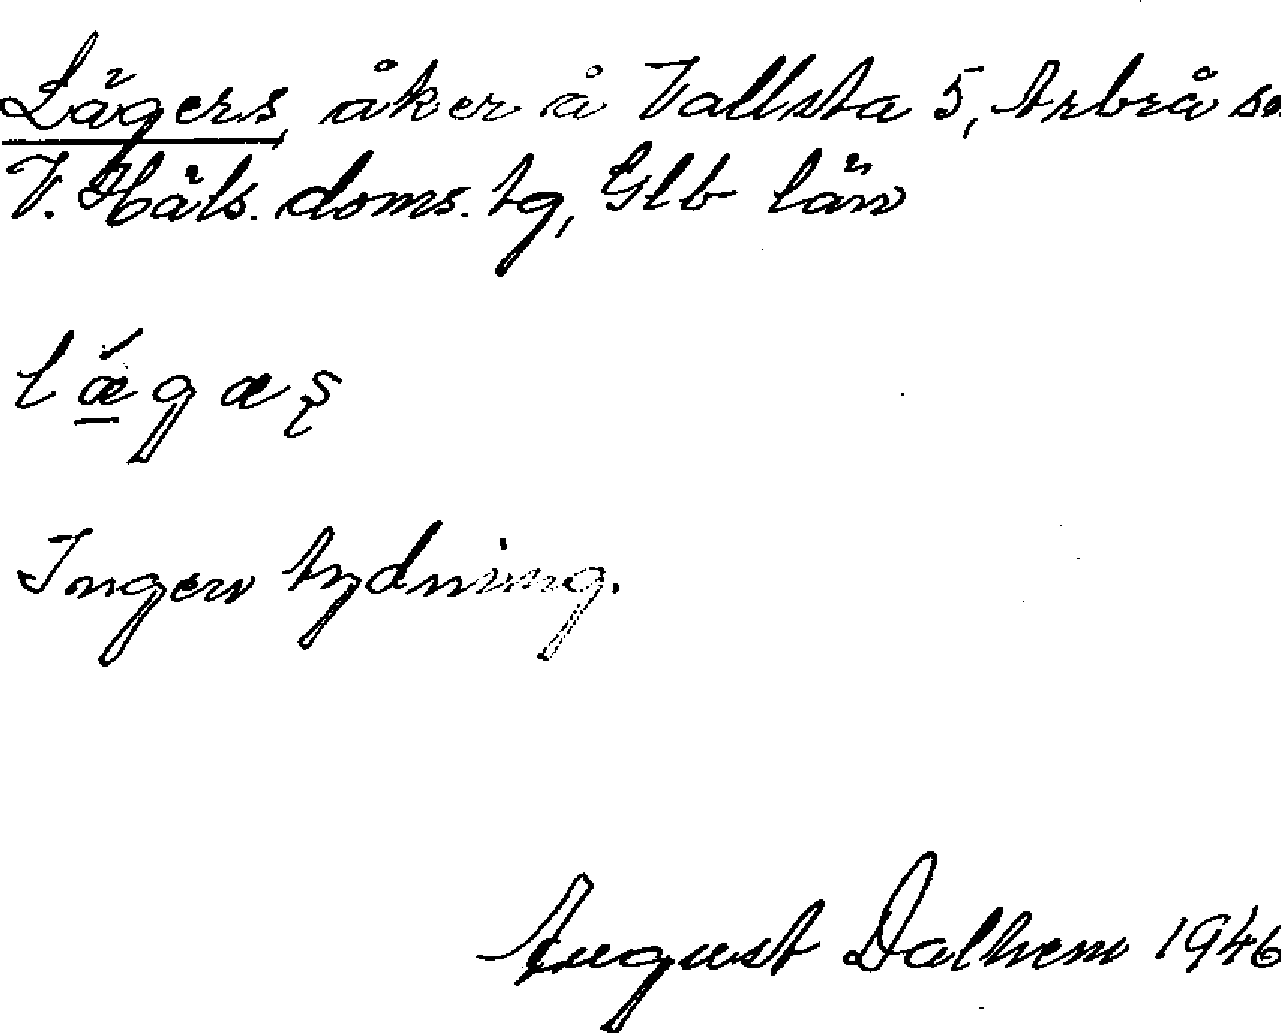 Lägers, åker å Vallsta 5, Arbrå sn
V. Häls. doms. tg, Glb län
lǽgæs̨
Ingen tydning.
August Dalhem 1946